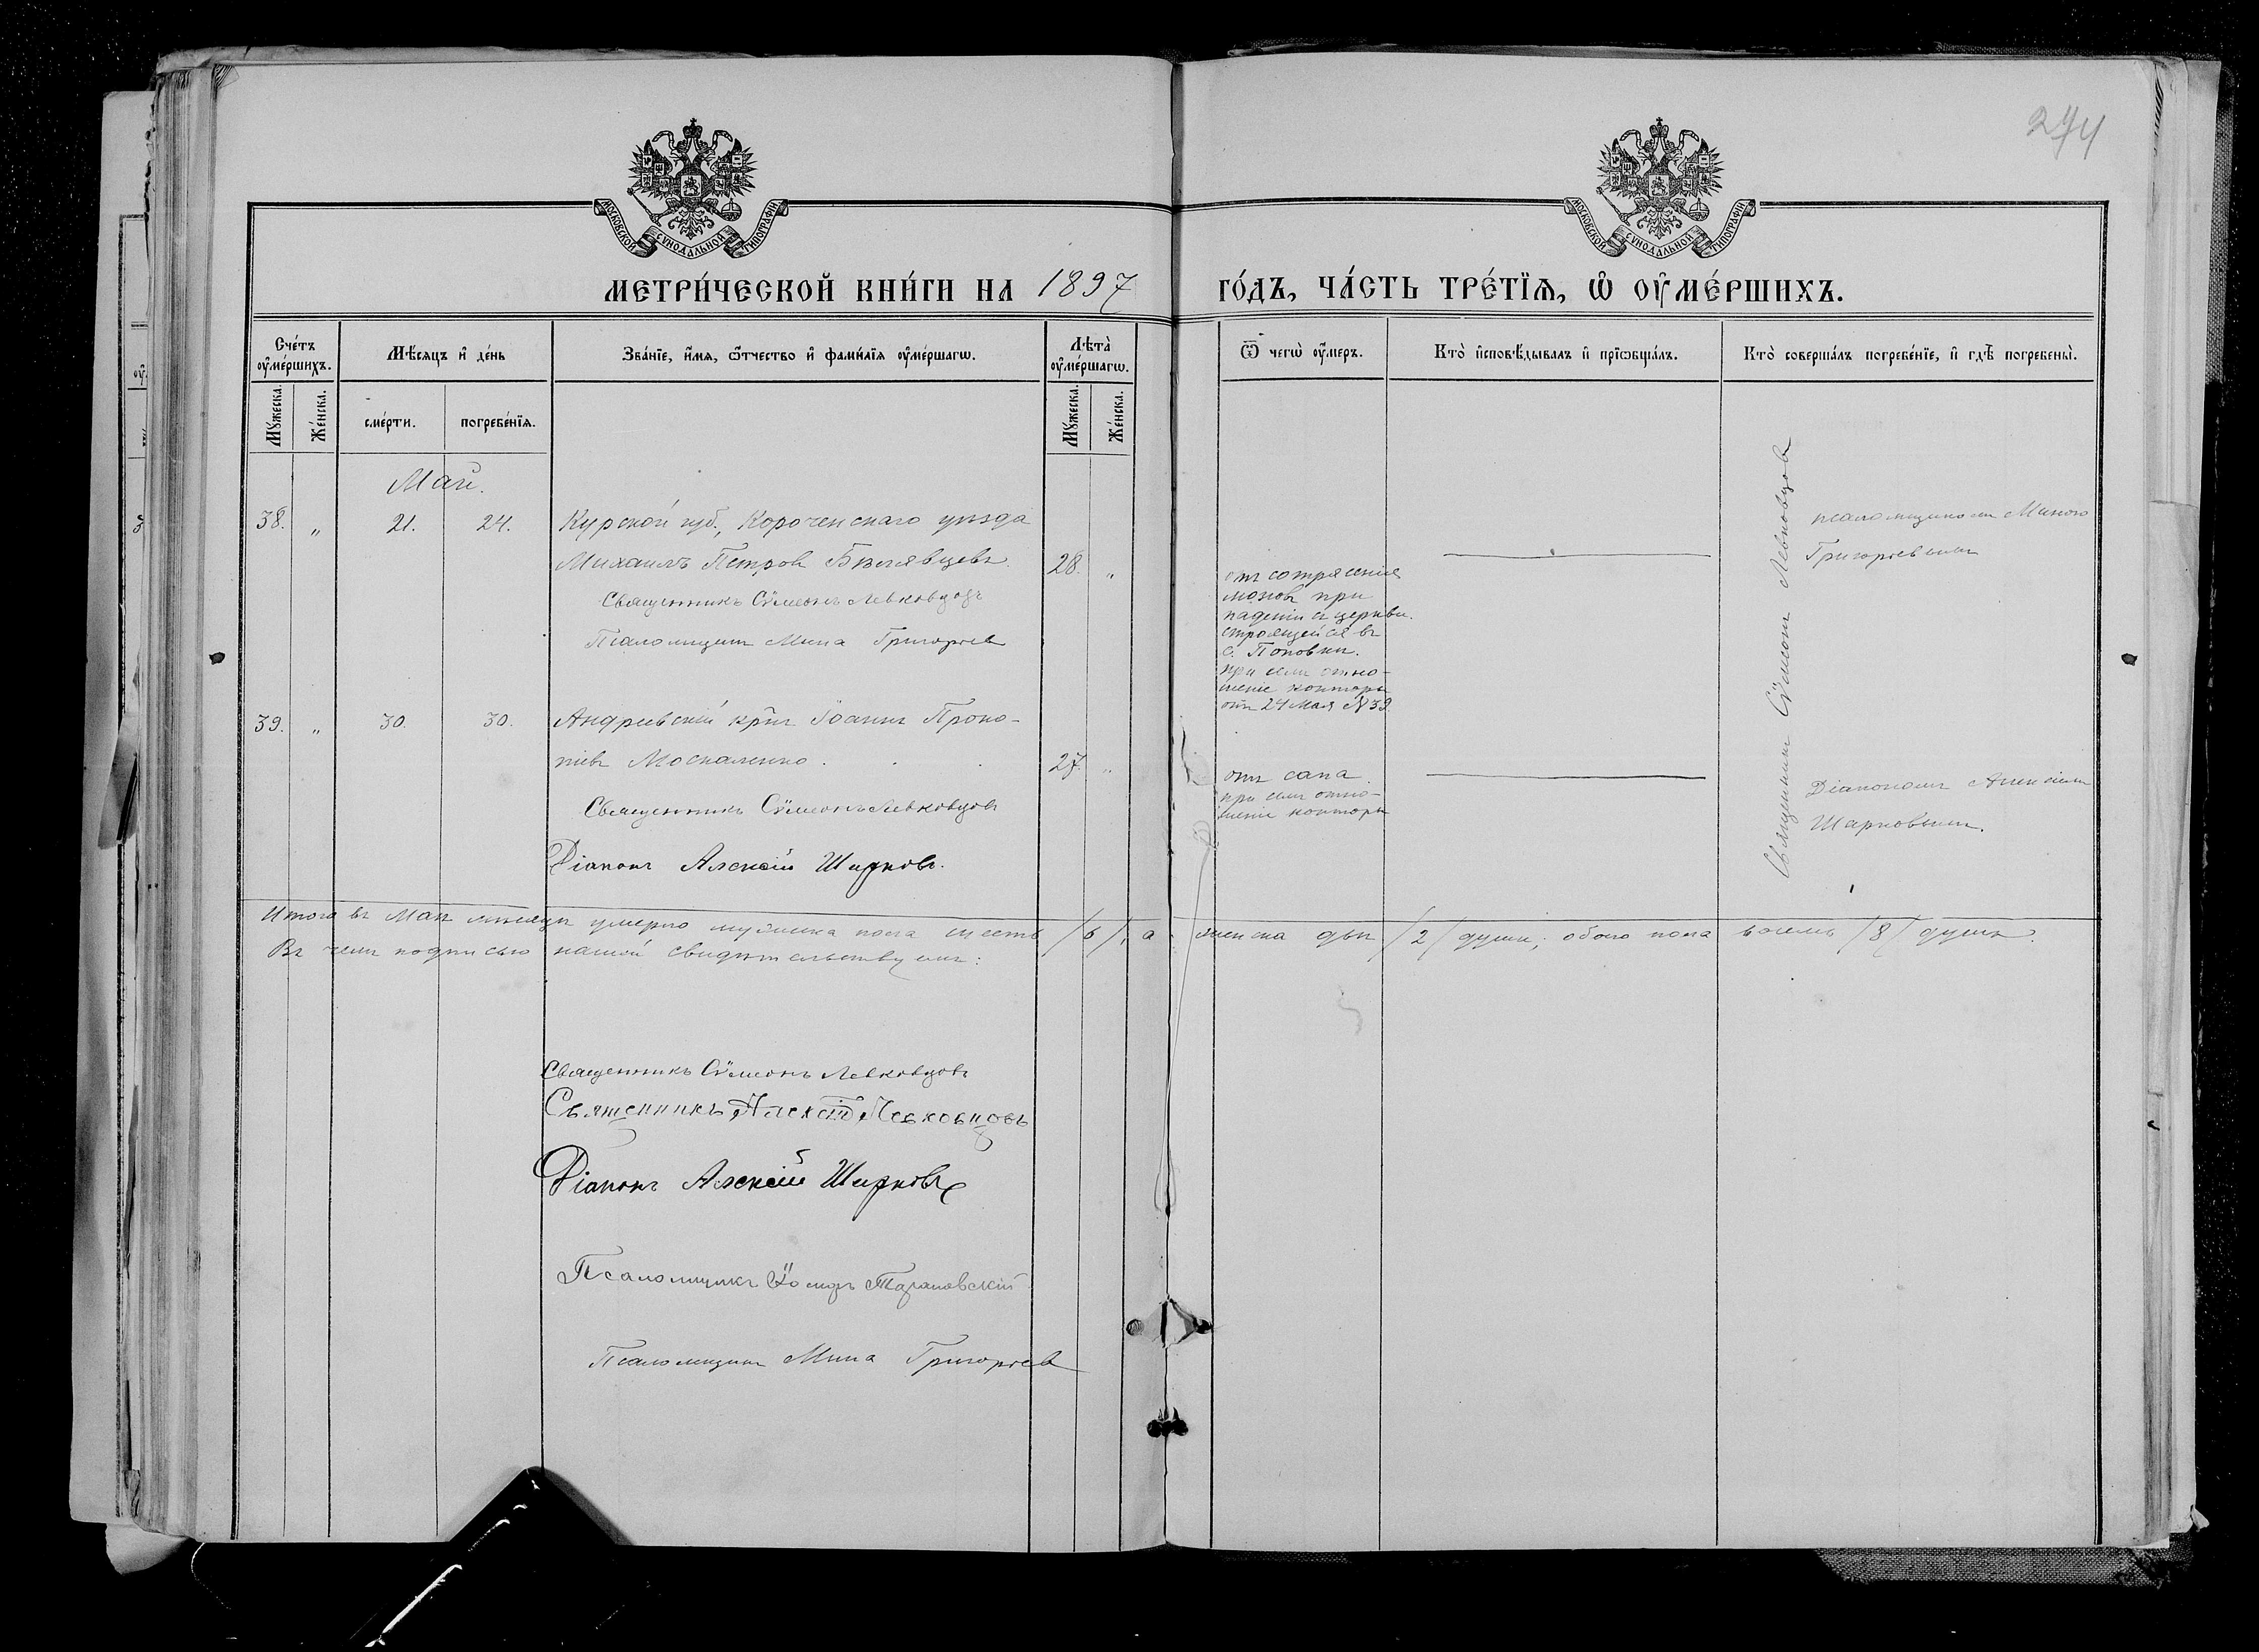 274
МОСКОВСКОЙ СУНОДАЛЬНОЙ ТИПОГРАФІИ
МОСКОВСКОЙ СУНОДАЛЬНОЙ ТИПОГРАФІИ
МЕТРИ́ЧЕСКОЙ КНИ́ГИ НА 1897 ГО́ДЪ, ЧА́СТЬ ТРЕ́ТЇѦ, Ѡ҆ ОУ҆МЕ́РШИХЪ.
Сче́тъ оу҆ме́ршихъ.
Мꙋ́жеска.
Же́нска.
Мѣ́сяцъ и҆ де́нь
сме́рти.
погребе́нїя.
Зва́нїе, и҆́мя, ѻ҆́тчество и҆ фами́лїя оу҆ме́ршагѡ.
Лѣта̀ оу҆ме́ршагѡ.
Мꙋ́жеска.
Же́нска.
Ѿ чегѡ̀ оу҆́меръ.
Кто̀ и҆сповѣ́дывалъ и҆ прїѡбща́лъ.
Кто̀ соверша́лъ погребе́нїе, и҆ гдѣ̀ погребены̀.
Май.
38. „ 21. 24. Курской губ., Короченскаго уѣзда
Михаилъ Петров Бѣлявцевъ. 28. „
Священникъ Сѵмеонъ Левковцовъ
Псаломщикъ Мина Григорьев
отъ сотрясенія
мозгов при
паденіи съ церкви.
строящейся въ
с. Поповки.
при семъ отно-
шеніе конторы
отъ 24 Мая № 39.
Священникъ Сѵмеонъ Левковцовъ
псаломщикомъ Миною
Григорьевымъ
39. „ 30. 30. Андреевскій кр̃нъ Іоаннъ Проко-
піевъ Москаленко. 27. „
Священникъ Сѵмеонъ Левковцовъ
Діаконъ Алексій Шарковъ.
отъ сапа.
при семъ отно-
шеніе конторы
Діакономъ Алексіемъ
Шарковымъ.
Итого въ Маѣ мѣсяцѣ умерло мужеска пола шесть /6/, а женска двѣ /2/ души; обоего пола восемь /8/ душъ.
Въ чемъ подписью нашей свидѣтельствуемъ:
Священникъ Сѵмеонъ Левковцовъ
Священникъ Алексій Левковцовъ
Діаконъ Алексій Шарковъ
Псаломщикъ
Псаломщикъ Мина Григорьев